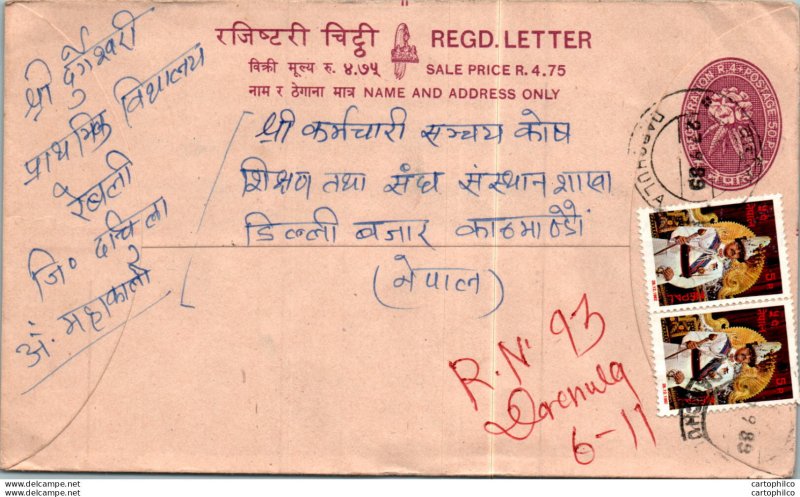 रजिष्टरी चिट्ठी REGD. LETTER
विक्री मूल्य रु. ४.७५ SALE PRICE R. 4.75
नाम र ठेगाना मात्र NAME AND ADDRESS ONLY
श्री दुर्गेश्वरी
प्राथमिक विद्यालय
रेबली
जि०
अं. महाकाली
श्री कर्मचारी सञ्चय कोष
शिक्षण तथा संघ संस्थान शाखा
डिल्ली बजार काठमाण्डौं
(नेपाल)
DARCHULA
R.N. 93
6-11
cartophilco
cartophilco